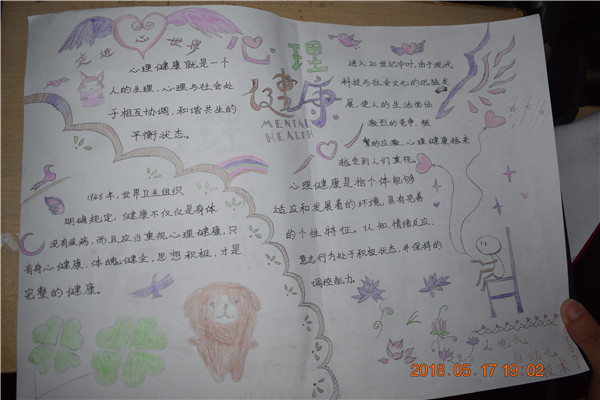 走进心世界
心理健康
MENTAL
HEALTH
心理健康就是一个
人的生理、心理与社会处
于相互协调,和谐共生的
平衡状态。
1948年,世界卫生组织
明确规定,健康不仅仅是身体
没有疾病,而且应当重视心理健康,只
有身心健康,体魄健全,思想积极,才是
完整的健康。
进入20世纪中叶,由于现代
科技与社会文化的迅猛发
展,使人的生活面临
激烈的竞争、强
繁的应激,心理健康越来
越受到人们重视。
心理健康是指个体能够
适应和发展着的环境,具有完善
的个性特征。认知,情绪反应,
意志行为处于积极状态,并保持的
调控能力。
2018.05.17 19:02